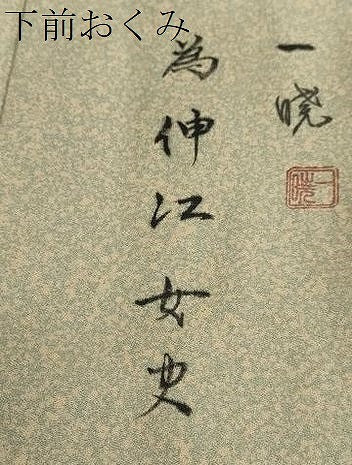 下前おくみ
一曉
為伸江女史